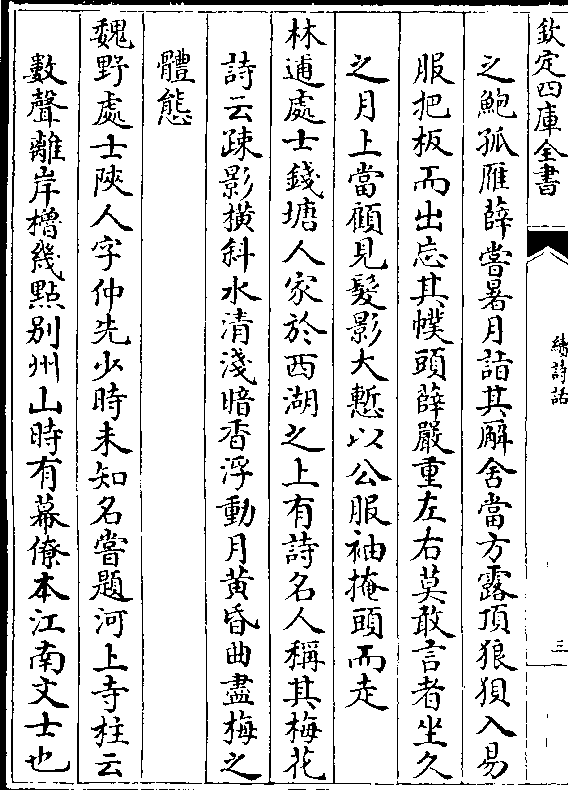 欽定四庫全書
續詩話
三
之鮑孤雁薛嘗暑月詣其廨舍當方露頂狼狽入易
服把板而出忘其幞頭薛嚴重左右莫敢言者坐久
之月上當顧見髮影大慙以公服袖掩頭而走
林逋處士錢塘人家於西湖之上有詩名人稱其梅花
詩云疎影橫斜水清淺暗香浮動月黃昏曲盡梅之
體態
魏野處士陜人字仲先少時未知名嘗題河上寺柱云
數聲離岸櫓幾點别州山時有幕僚本江南文士也